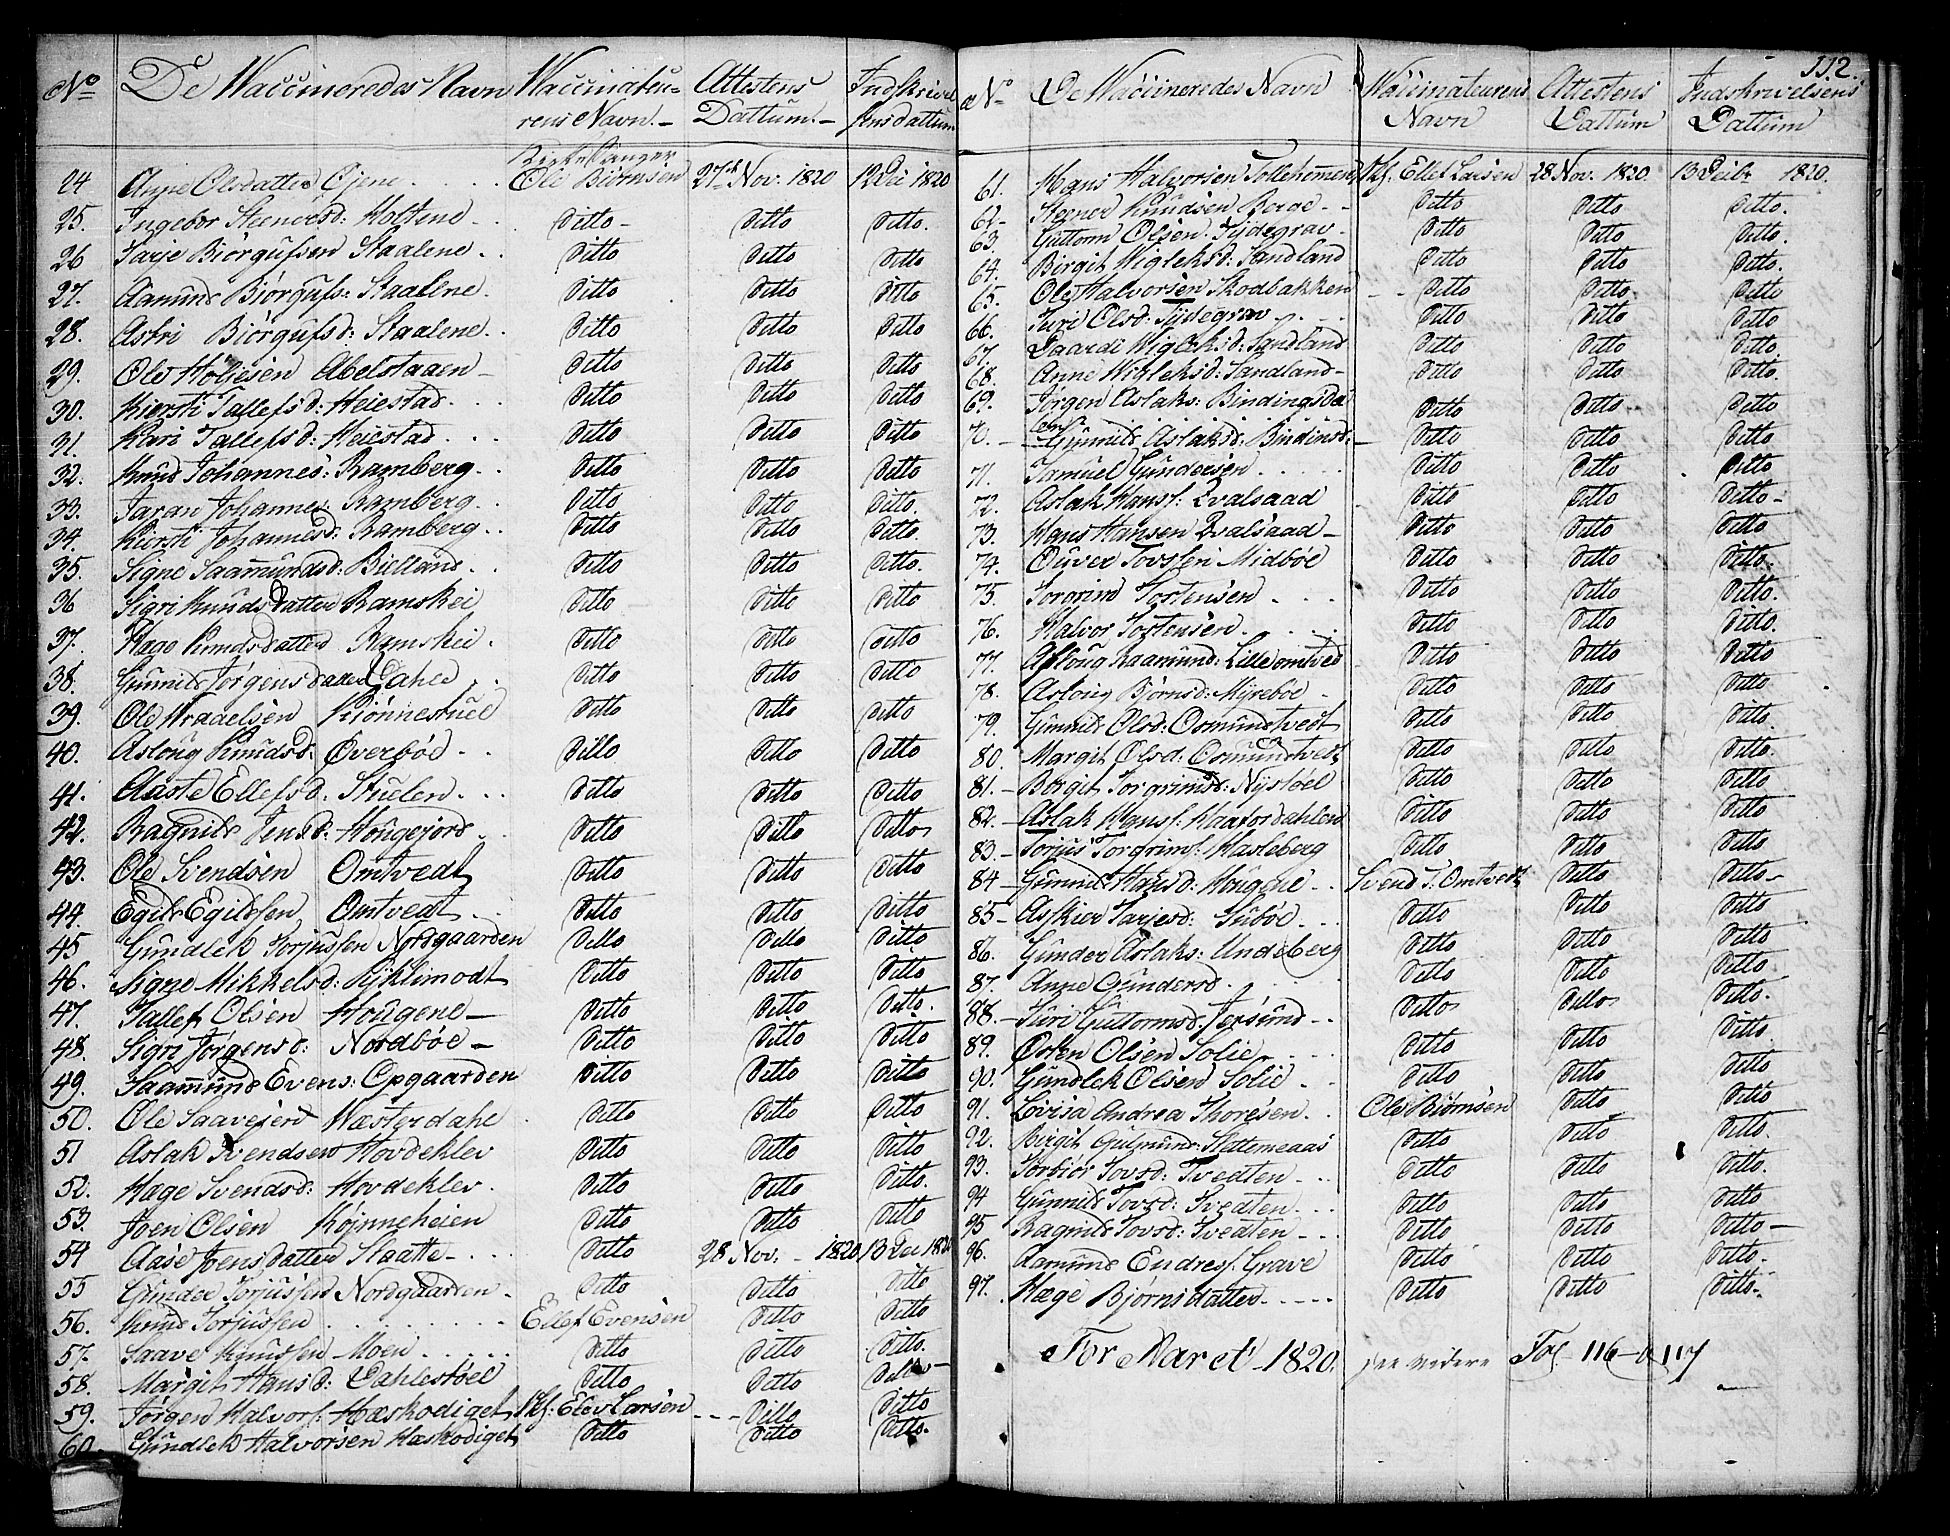 No De Waccineredes Navn Waccinateurens Navn.- Attestens Dattum.- Indskrivelsens dattum
24 Anne Olsdatter Ejene Kirkesanger Ole Biörnsen 27de Nov. 1820 12 Dec 1820
25. Ingebor Steenersd: Holtene Ditto Ditto Ditto.
26 Tarje Biörgufsen Staalene Ditto Ditto Ditto
27. Aamund Biörgufs: Staalene Ditto Ditto Ditto
28. Astri Biörgufsd: Staalene Ditto Ditto Ditto
29. Ole Holjesen Abelstaaen Ditto Ditto Ditto
30. Kiersti Tallefsd: Heiestad Ditto Ditto Ditto
31. Kari Tallefsd: Heiestad Ditto Ditto Ditto
32. Knud Johannes: Ramberg Ditto Ditto Ditto
33. Taran Johannes: Ramberg Ditto Ditto Ditto.
34. Kiersti Johannesd: Ramberg Ditto Ditto Ditto.
35. Signe Saamundsd: Bielland Ditto Ditto Ditto.
36 Sigri Knudsdatter Ramskei Ditto Ditto Ditto
37. Hæge Knudsdatter Ramskei Ditto Ditto Ditto
38. Gunnild Jörgensdatter Dahle Ditto Ditto Ditto
39. Ole Wraaelsen Kiönnestuel Ditto Ditto Ditto
40. Asloug Knudsd: Överböe Ditto Ditto Ditto
41. Aaste Ellefsd. Stuelen Ditto Ditto Ditto
42. Ragnild Jensd: Hougejord Ditto Ditto Ditto
43. Ole Svendsen Omtvedt Ditto Ditto Ditto
44. Egild Egildsen Omtvedt Ditto Ditto Ditto
45 Gundlek Torjussen Nordgaarden Ditto Ditto Ditto
46. Signe Mikkelsd: Ryklimodt Ditto Ditto Ditto
47. Tallef Olsen Hougene Ditto Ditto Ditto.
48. Sigri Jörgensd: Nordböe Ditto Ditto Ditto
49. Saamund Evens: Opgaarden Ditto Ditto Ditto
50. Ole Saavejord Wæsterdahl Ditto Ditto Ditto
51 Aslak Svendsen Hovdeklev Ditto Ditto Ditto
52. Hæge Svendsd: Hovdeklev Ditto Ditto Ditto.
53. Joen Olsen Ditto Ditto Ditto
54 Aase Joensdatter Staatte Ditto 28 Nov. 1820 13 Dec 1820
55 Gunder Torjussen Nordgaarden Ditto Ditto Ditto
56. Knud Torjussen Ellef Evensen Ditto Ditto
57. Saave Knudsen Moen Ditto Ditto Ditto.
58. Margit Hansd: Dahlestöel Ditto Ditto Ditto
59. Jörgen Halvors: Hæskodiget Skf: Elev Larsen Ditto Ditto
60. Gundlek Halvorsen Hæskodiget Ditto Ditto Ditto.
112.
No De Waccineredes Navn Waccinateurens Navn Attestens Dattum Indskrivelsens Dattum
61. Hans Halvorsen Skf. Ellef Larsen 28 Nov. 1820. 13 Decbr 1820.
62. Steener Knudsen Berge Ditto Ditto Ditto.
63. Guttorm Olsen Tydegrav Ditto Ditto Ditto.
64. Birgit Wigleksd: Sandland Ditto Ditto Ditto.
65. Ole Halvorsen Skodbakken Ditto Ditto Ditto
66. Turi Olsd: Tydegrav Ditto Ditto Ditto
67. Gaardi Wigleksd: Sandland Ditto Ditto Ditto.
68. Anne Wigleksd: Sandland Ditto Ditto Ditto.
69. Jörgen Aslaks: Bindingsdalen Ditto Ditto Ditto
70. Gunnild Aslaksd: Bindinsd: Ditto Ditto Ditto
71. Samuel Gundersen Ditto Ditto Ditto
72. Aslak Hans: Qvalsaad Ditto Ditto Ditto
73. Hans Hansen Qvalsaad Ditto Ditto Ditto
74. Ouver Tovsen Midböe Ditto Ditto Ditto.
75. Torgrim Tostensen Ditto Ditto Ditto
76. Halvor Tostensen Ditto Ditto Ditto.
77. Aslaug Raamund: Lille omtved Ditto Ditto Ditto
78. Asloug Björnsd: Myreböe Ditto Ditto Ditto
79. Gunnild Olsd: Osmundtvedt Ditto Ditto Ditto.
80. Margit Olsd: Osmundtvedt Ditto Ditto Ditto
81. Birgit Torgrimsd: Nystöel Ditto Ditto Ditto
82. Aslak Hans: Haafordahlen Ditto Ditto Ditto
83. Torjus Torgrims: Hasleberg Ditto Ditto Ditto
84 Gunnild Hansd: Hougene Svend T: Omtvedt Ditto Ditto
85 Asskier Tarjesd: Suböe Ditto Ditto Ditto
86. Gunder Aslaks: Undeberg Ditto Ditto Ditto
87. Anne Gundersd. Ditto Ditto Ditto
88. Turi Guttormsd: Jörsund Ditto Ditto Ditto.
89. Østen Olsen Solie Ditto Ditto Ditto.
90. Gundlek Olsen Solie Ditto Ditto Ditto
91. Lovisa Andrea Thoresen Ole Biörnsen Ditto Ditto
92. Birgit Gulmund: Ditto Ditto Ditto.
93. Torbiör Tovsd: Tvedten Ditto Ditto Ditto.
94 Gunnild Tovsd: Tvedten Ditto Ditto Ditto
95 Ragnild Tovsd: Tvedten Ditto Ditto Ditto
96. Aamund Endres: Grave Ditto Ditto Ditto.
97. Hæge Björnsdatter Ditto Ditto Ditto.
For Aaret 1820. see videre Fol. 116 – 117